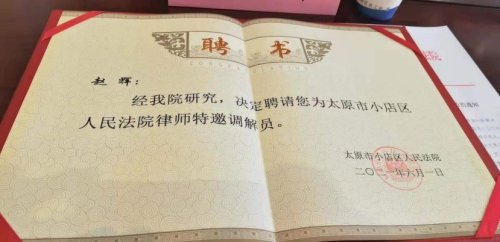 聘书
赵辉：
经我院研究，决定聘请您为太原市小店区
人民法院律师特邀调解员。
太原市小店区人民法院
二〇二一年六月一日